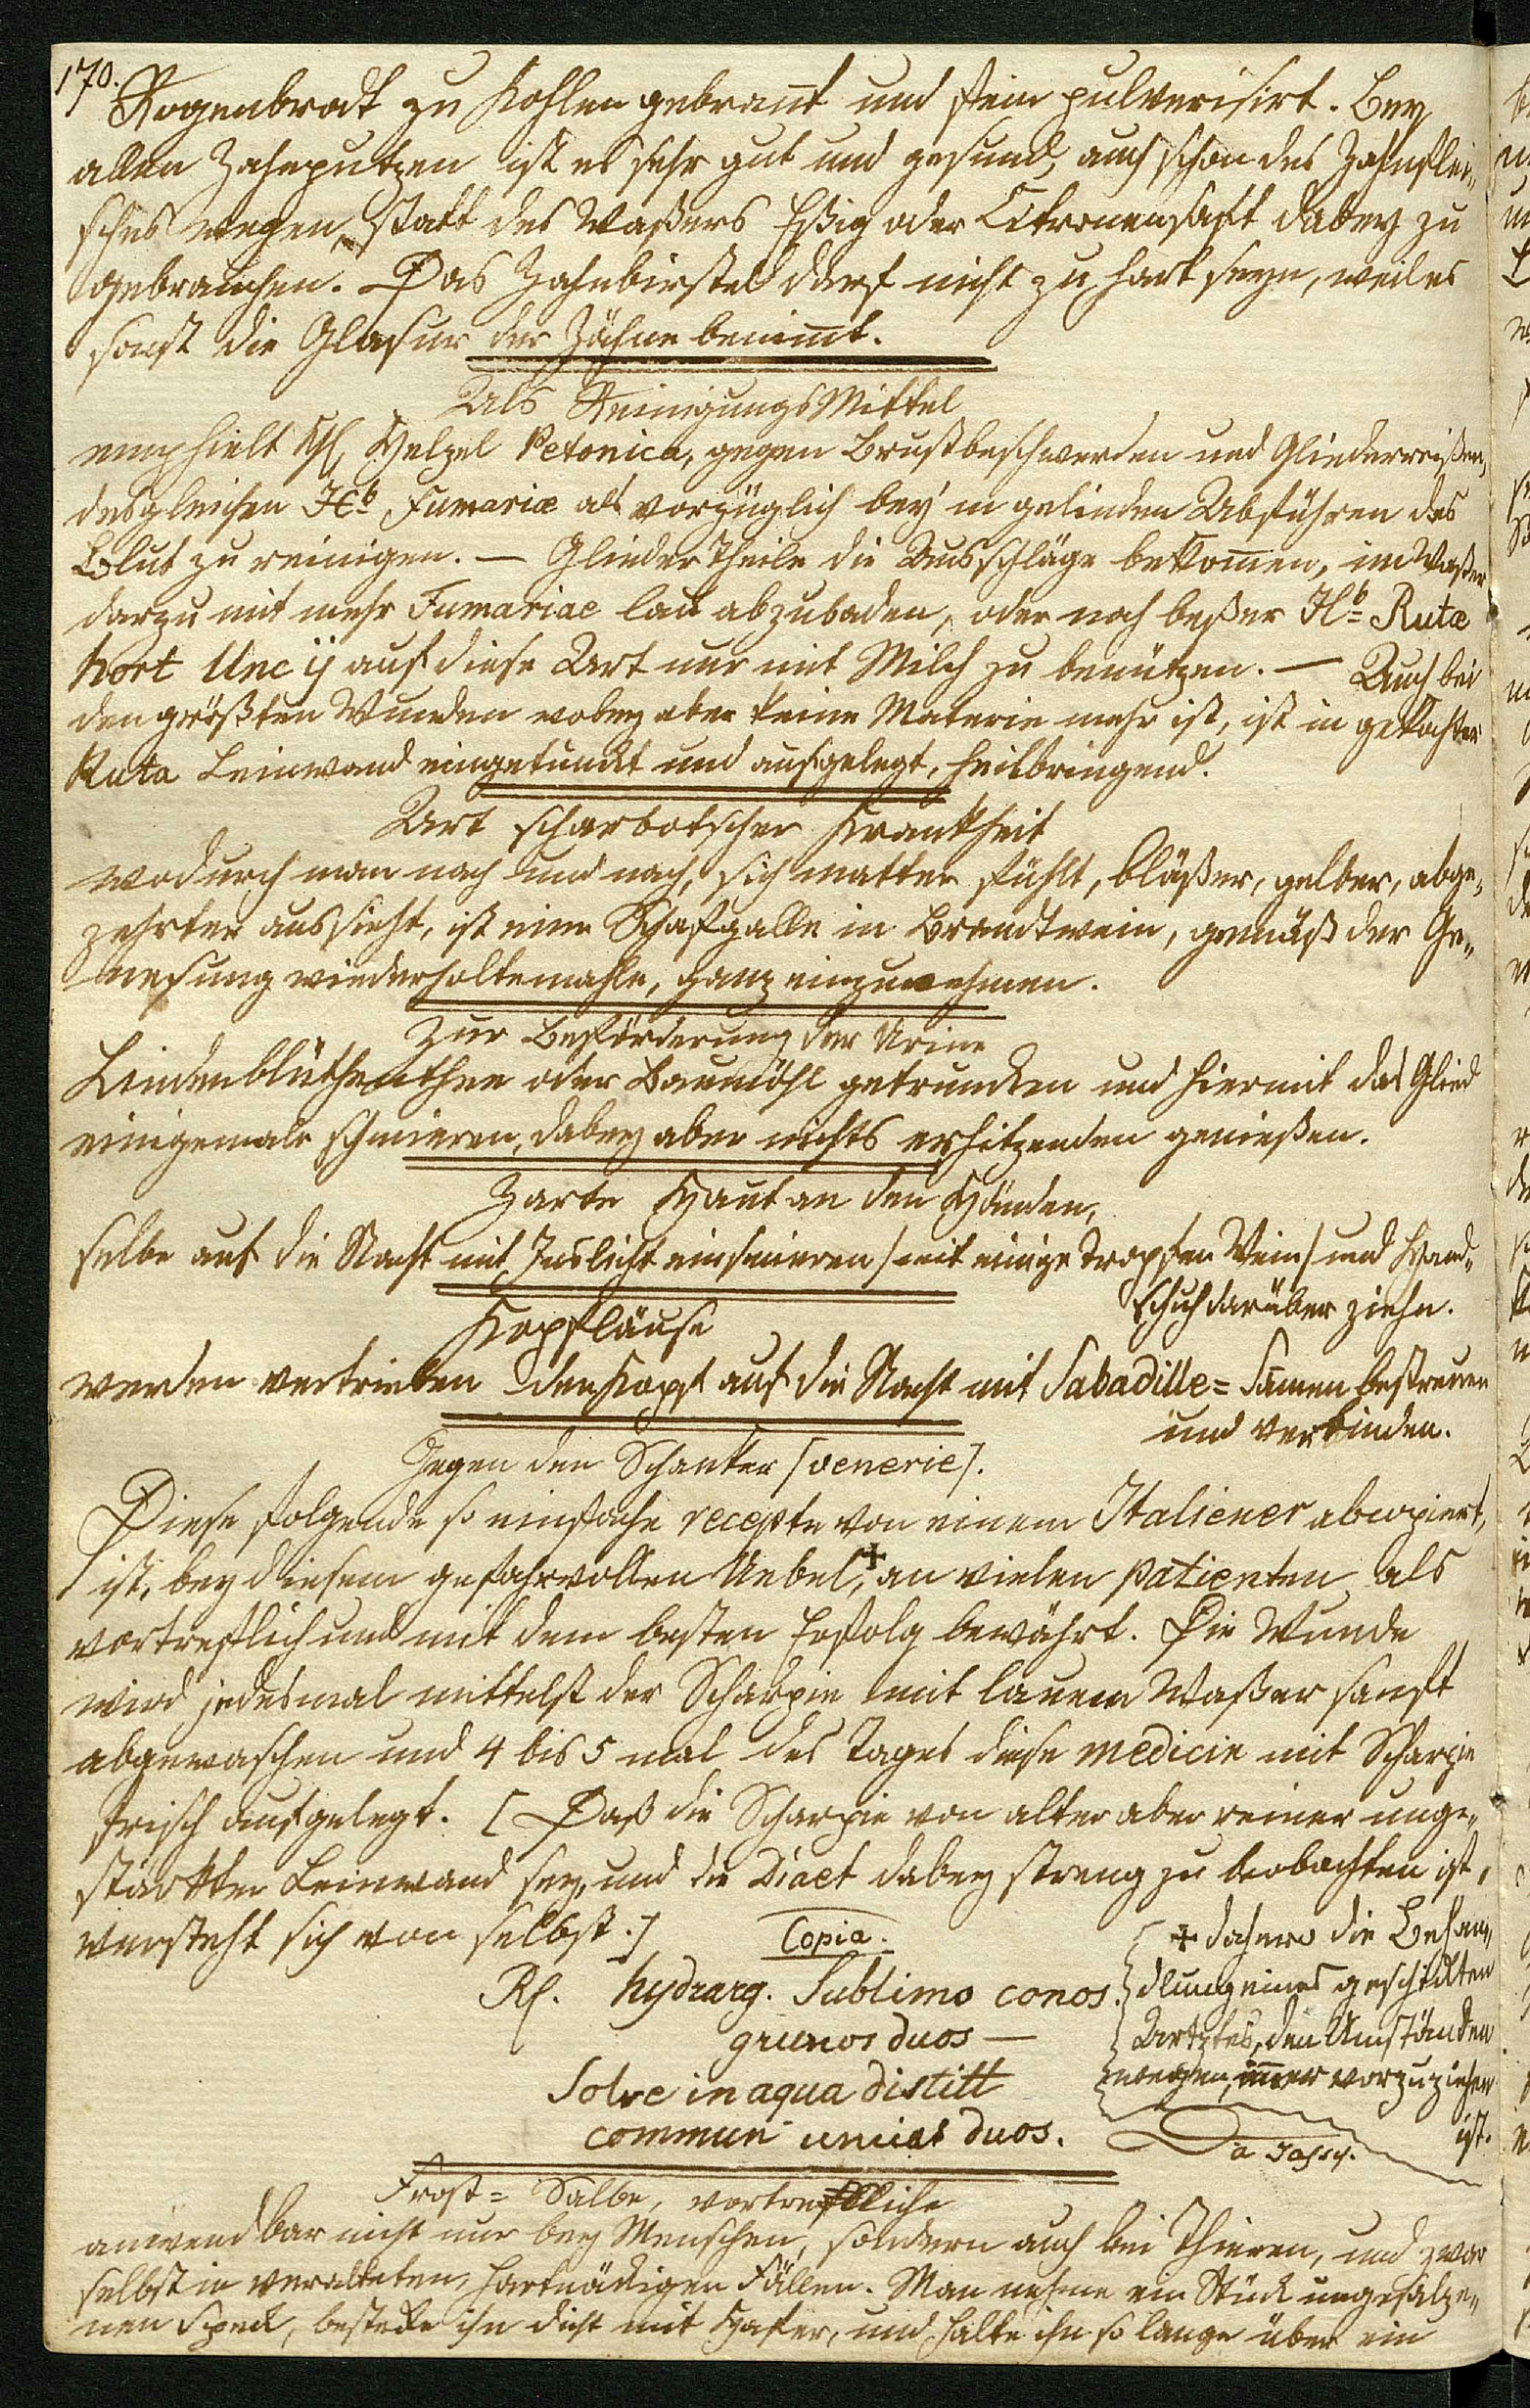 170.
Rogenbrodt zu Kohlen gebrant und fein pulverisirt. Bey
allen Zahnputzen ist es sehr gut und gesund, auch schon des Zahnflei¬
sches wegen, statt des Waßers Eßig oder Citronensaft dabey zu
gebrauchen. Das Zahnbirstel darf nicht zu hart seyn, weil es
sonst die Glasur der Zähne benimt.
Als ReinigungsMittel
empfielt Helzel Petonica, gegen Brustbeschwerden und Gliederreißen,
desgleichen Hb Fumariæ als vorzüglich bey'm gelinden Abführen das
Blut zu reinigen. — GliederTheile die Ausschläge bekomen, im Waßer
darzu mit mehr Fumariae lau abzubaden, oder noch beßer Hb Rutæ
hort Unc ij auf diese Art nur mit Milch zu benützen. — Auch bei
den größten Wunden wobey aber keine Materie mehr ist, ist in gekochter
Ruta Leinwand eingetunckt und aufgelegt, heilbringend.
Art scharbotscher Krankheit
wodurch man nach und nach, sich matter fühlt, bläßer, gelber, abge¬
zehrter aussieht, ist eine Schafgalle in Brandtwein, gemäß der Ge¬
nesung wiederholtemahle, ganz einzunehmen.
Zur Beförderung der Urine
Lindenblüthenthee oder Baumöhl getruncken und hiermit das Glied
einigemale schmieren, dabey aber nichts erhitzenden genießen.
Zarte Haut an den Händen,
selbe auf die Nacht mit Inslicht einschmieren /mit einige Tropfen Wein/ und Hand¬
schuh darüber ziehn.
Kopfläuse
werden vertrieben den Kopf auf die Nacht mit Sabadille= Samen bestreuen
und verbinden.
Gegen den Schanker [venerie].
Diese folgende so einfache recepte von einem Italiener abcopiert,
ist, bey diesem gefahrvollen Uebel,+ an vielen Patienten als
vortreflich und mit dem besten Erfolg bewährt. Die Wunde
wird jedesmal mittelst der Scharpie mit lauem Waßer sanft
abgewaschen und 4 bis 5 mal des Tages diese medicin mit Scharpie
frisch aufgelegt. [Daß die Scharpie von alter aber reiner unge¬
stärkter Leinwand sey, und die Diaet dabey streng zu beobachten ist,
versteht sich von selbst.]
Copia.
Rf. hydrarg. Sublimo conos.
grunos duos —
Solve in aqua distill
commun uncias duos.
+ dahero die Behan¬
dlung eines geschickten
Artztes, den Umständen
wegen, imer vorzuziehen
ist.
Frost= Salbe, vortrefliche
anwendbar nicht nur bey Menschen, sondern auch bei Thieren, und zwar
selbst in veralteten, hartnäckigen Fällen. Man nehme ein Stück ungesalze¬
nen Speck, bestecke ihn dicht mit Hafer, und halte ihn so lange über ein